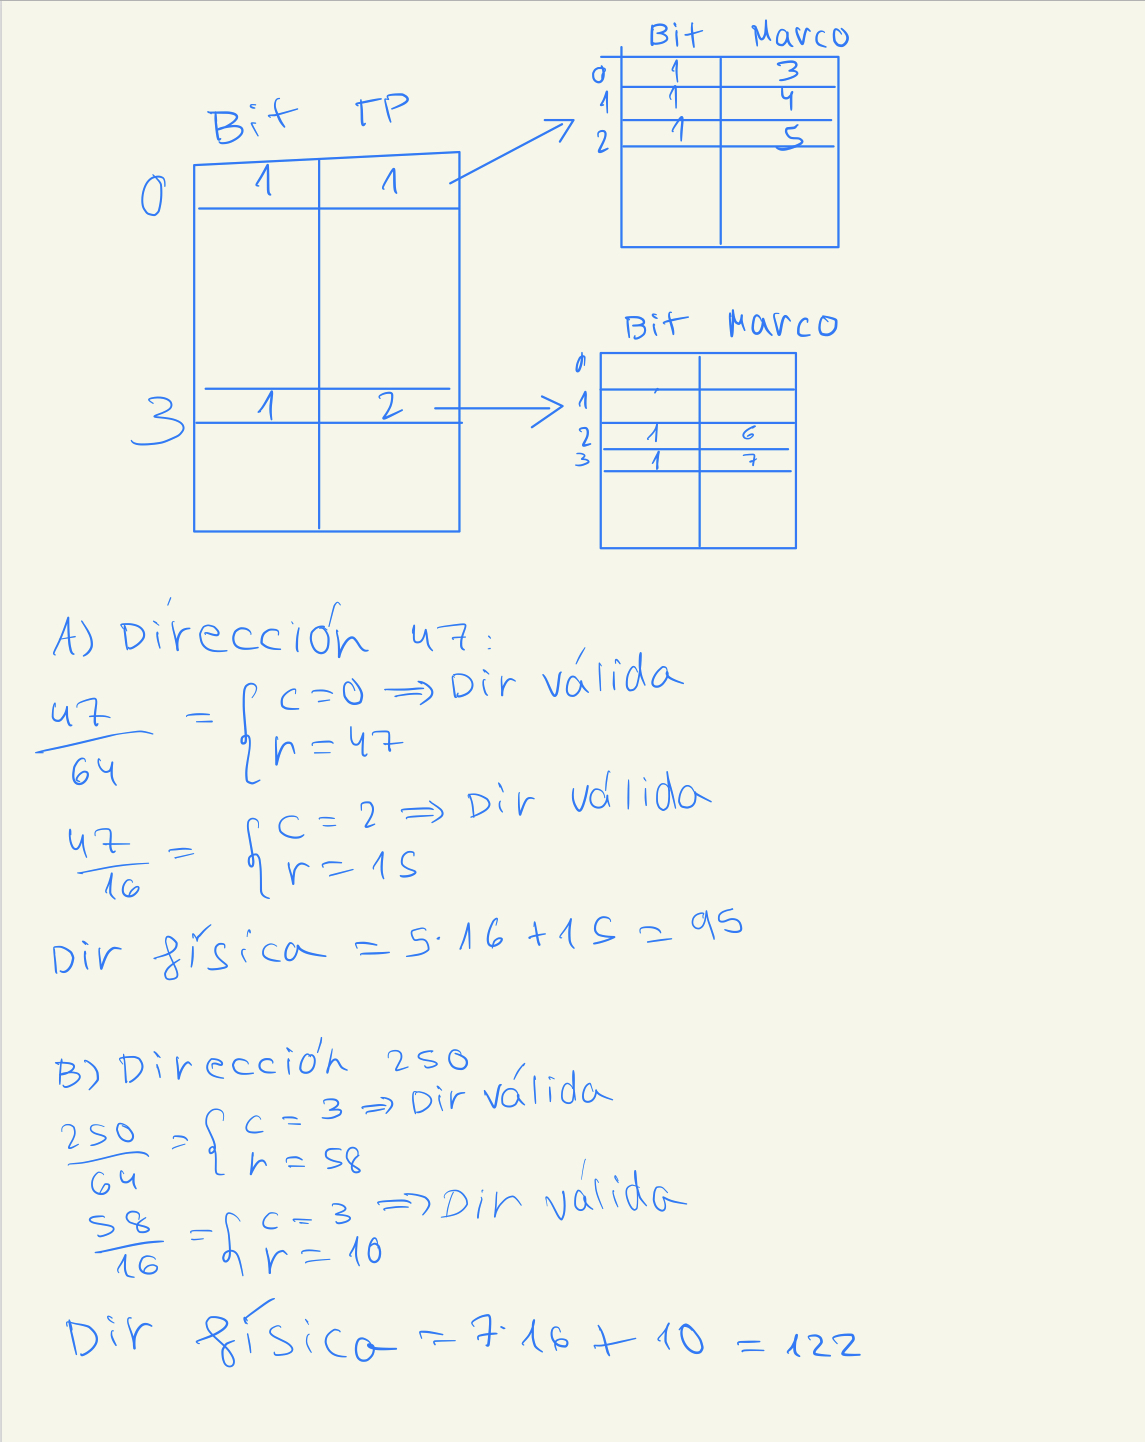 Bit TP
0 1 1
3 1 2
Bit Marco
0 1 3
1 1 4
2 1 5
Bit Marco
0
1
2 1 6
3 1 7
A) Dirección 47:
47/64 = { c = 0 ⇒ Dir válida
r = 47
47/16 = { c = 2 ⇒ Dir válida
r = 15
Dir física = 5·16 + 15 = 95
B) Dirección 250
250/64 = { c = 3 ⇒ Dir válida
r = 58
58/16 = { c = 3 ⇒ Dir válida
r = 10
Dir física = 7·16 + 10 = 122